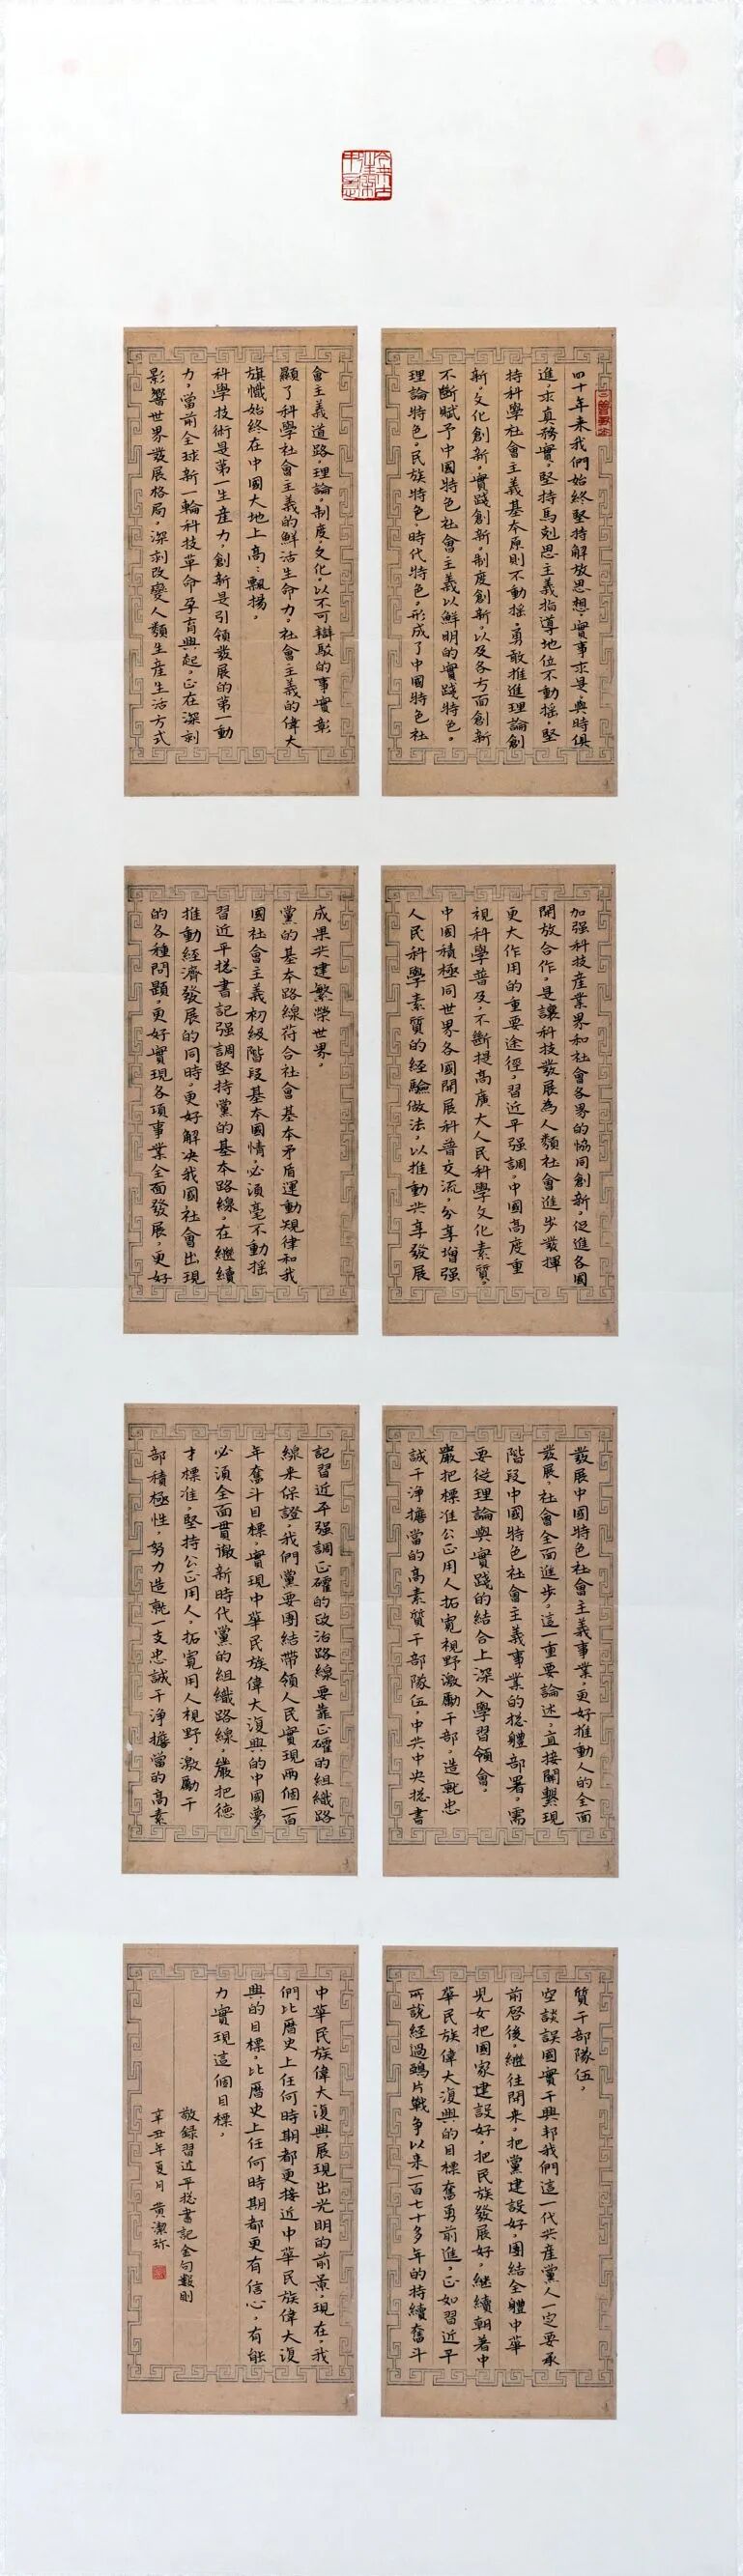 四十年来我們始終堅持解放思想,實事求是,與時俱
進,求真務實,堅持馬剋思主義指導地位不動摇,堅
持科學社會主義基本原則不動摇,勇敢推進理論創
新,文化創新,實踐創新,制度創新,以及各方面創新
不斷賦予中國特色社會主義以鮮明的實踐特色。
理論特色,民族特色,時代特色,形成了中國特色社
會主義道路,理論,制度,文化,以不可辯駁的事實彰
顯了科學社會主義的鮮活生命力,社會主義的偉大
旗幟始終在中國大地上高:飄揚。
科學技術是第一生産力創新是引領發展的第一動
力,當前全球新一輪科技革命孕育興起,正在深刻
影響世界發展格局,深刻改變人類生産生活方式
加强科技産業界和社會各界的協同創新,促進各國
開放合作,是讓科技發展為人類社會進步發揮
更大作用的重要途徑,習近平强調,中國高度重
視科學普及,不斷提高廣大人民科學文化素質。
中國積極同世界各國開展科普交流,分享增强
人民科學素質的經驗做法,以推動共享發展
成果共建繁榮世界。
黨的基本路線符合社會基本矛盾運動規律和我
國社會主義初級階段基本國情,必須毫不動摇
習近平總書記强調堅持黨的基本路線,在繼續
推動經濟發展的同時,更好解决我國社會出現
的各種問題,更好實現各項事業全面發展,更好
發展中國特色社會主義事業,更好推動人的全面
發展,社會全面進步,這一重要論述,直接關繫現
階段中國特色社會主義事業的總體部署,需
要從理論與實踐的結合上深入學習領會。
嚴把標准公正用人拓寬視野激勵干部,造就忠
誠干净擔當的高素質干部隊伍,中共中央總書
記習近平强調正確的政治路線要靠正確的組織路
線来保證,我們黨要團結帶領人民實現兩個一百
年奮斗目標,實現中華民族偉大復興的中國夢
必須全面貫徹新時代黨的組織路線,嚴把德
才標准,堅持公正用人,拓寬用人視野,激勵干
部積極性,努力造就一支忠誠干净擔當的高素
質干部隊伍。
空談誤國實干興邦我們這一代共産黨人一定要承
前啓後,繼往開来,把黨建設好,團結全體中華
兒女把國家建設好,把民族發展好,繼續朝著中
華民族偉大復興的目標奮勇前進,正如習近平
所説經過鴉片戰争以来一百七十多年的持續奮斗
中華民族偉大復興展現出光明的前景,現在,我
們比曆史上任何時期都更接近中華民族偉大復
興的目標,比曆史上任何時期都更有信心,有能
力實現這個目標。
敬録習近平總書記金句數則
辛丑年夏月 黄潔珎